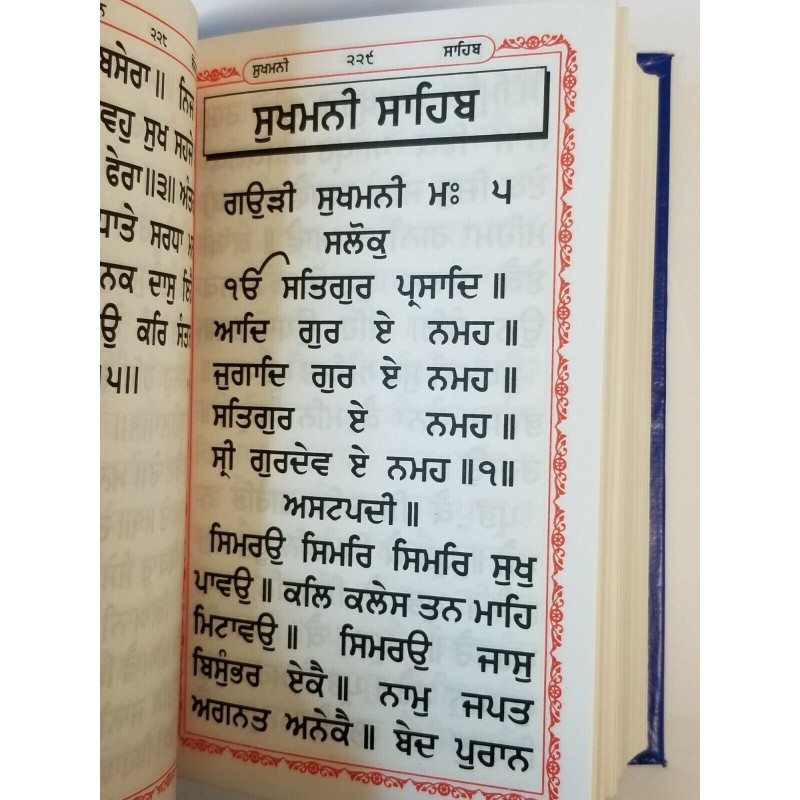 ੨੨੮
ਬਸੇਰਾ॥ ਨਿਜ
ਸੁਖ ਸਹਜੇ
ਫੇਰਾ॥੩॥
ਸਰਧਾ
ਦਾਸੁ
ਕਰਿ
੫॥
ਸੁਖਮਨੀ ੨੨੯ ਸਾਹਿਬ
ਸੁਖਮਨੀ ਸਾਹਿਬ
ਗਉੜੀ ਸੁਖਮਨੀ ਮਃ ੫
ਸਲੋਕੁ
ੴ ਸਤਿਗੁਰ ਪ੍ਰਸਾਦਿ॥
ਆਦਿ ਗੁਰ ਏ ਨਮਹ॥
ਜੁਗਾਦਿ ਗੁਰ ਏ ਨਮਹ॥
ਸਤਿਗੁਰ ਏ ਨਮਹ॥
ਸ੍ਰੀ ਗੁਰਦੇਵ ਏ ਨਮਹ॥੧॥
ਅਸਟਪਦੀ॥
ਸਿਮਰਉ ਸਿਮਰਿ ਸਿਮਰਿ ਸੁਖੁ
ਪਾਵਉ॥ ਕਲਿ ਕਲੇਸ ਤਨ ਮਾਹਿ
ਮਿਟਾਵਉ॥ ਸਿਮਰਉ ਜਾਸੁ
ਬਿਸੁੰਭਰ ਏਕੈ॥ ਨਾਮੁ ਜਪਤ
ਅਗਨਤ ਅਨੇਕੈ॥ ਬੇਦ ਪੁਰਾਨ